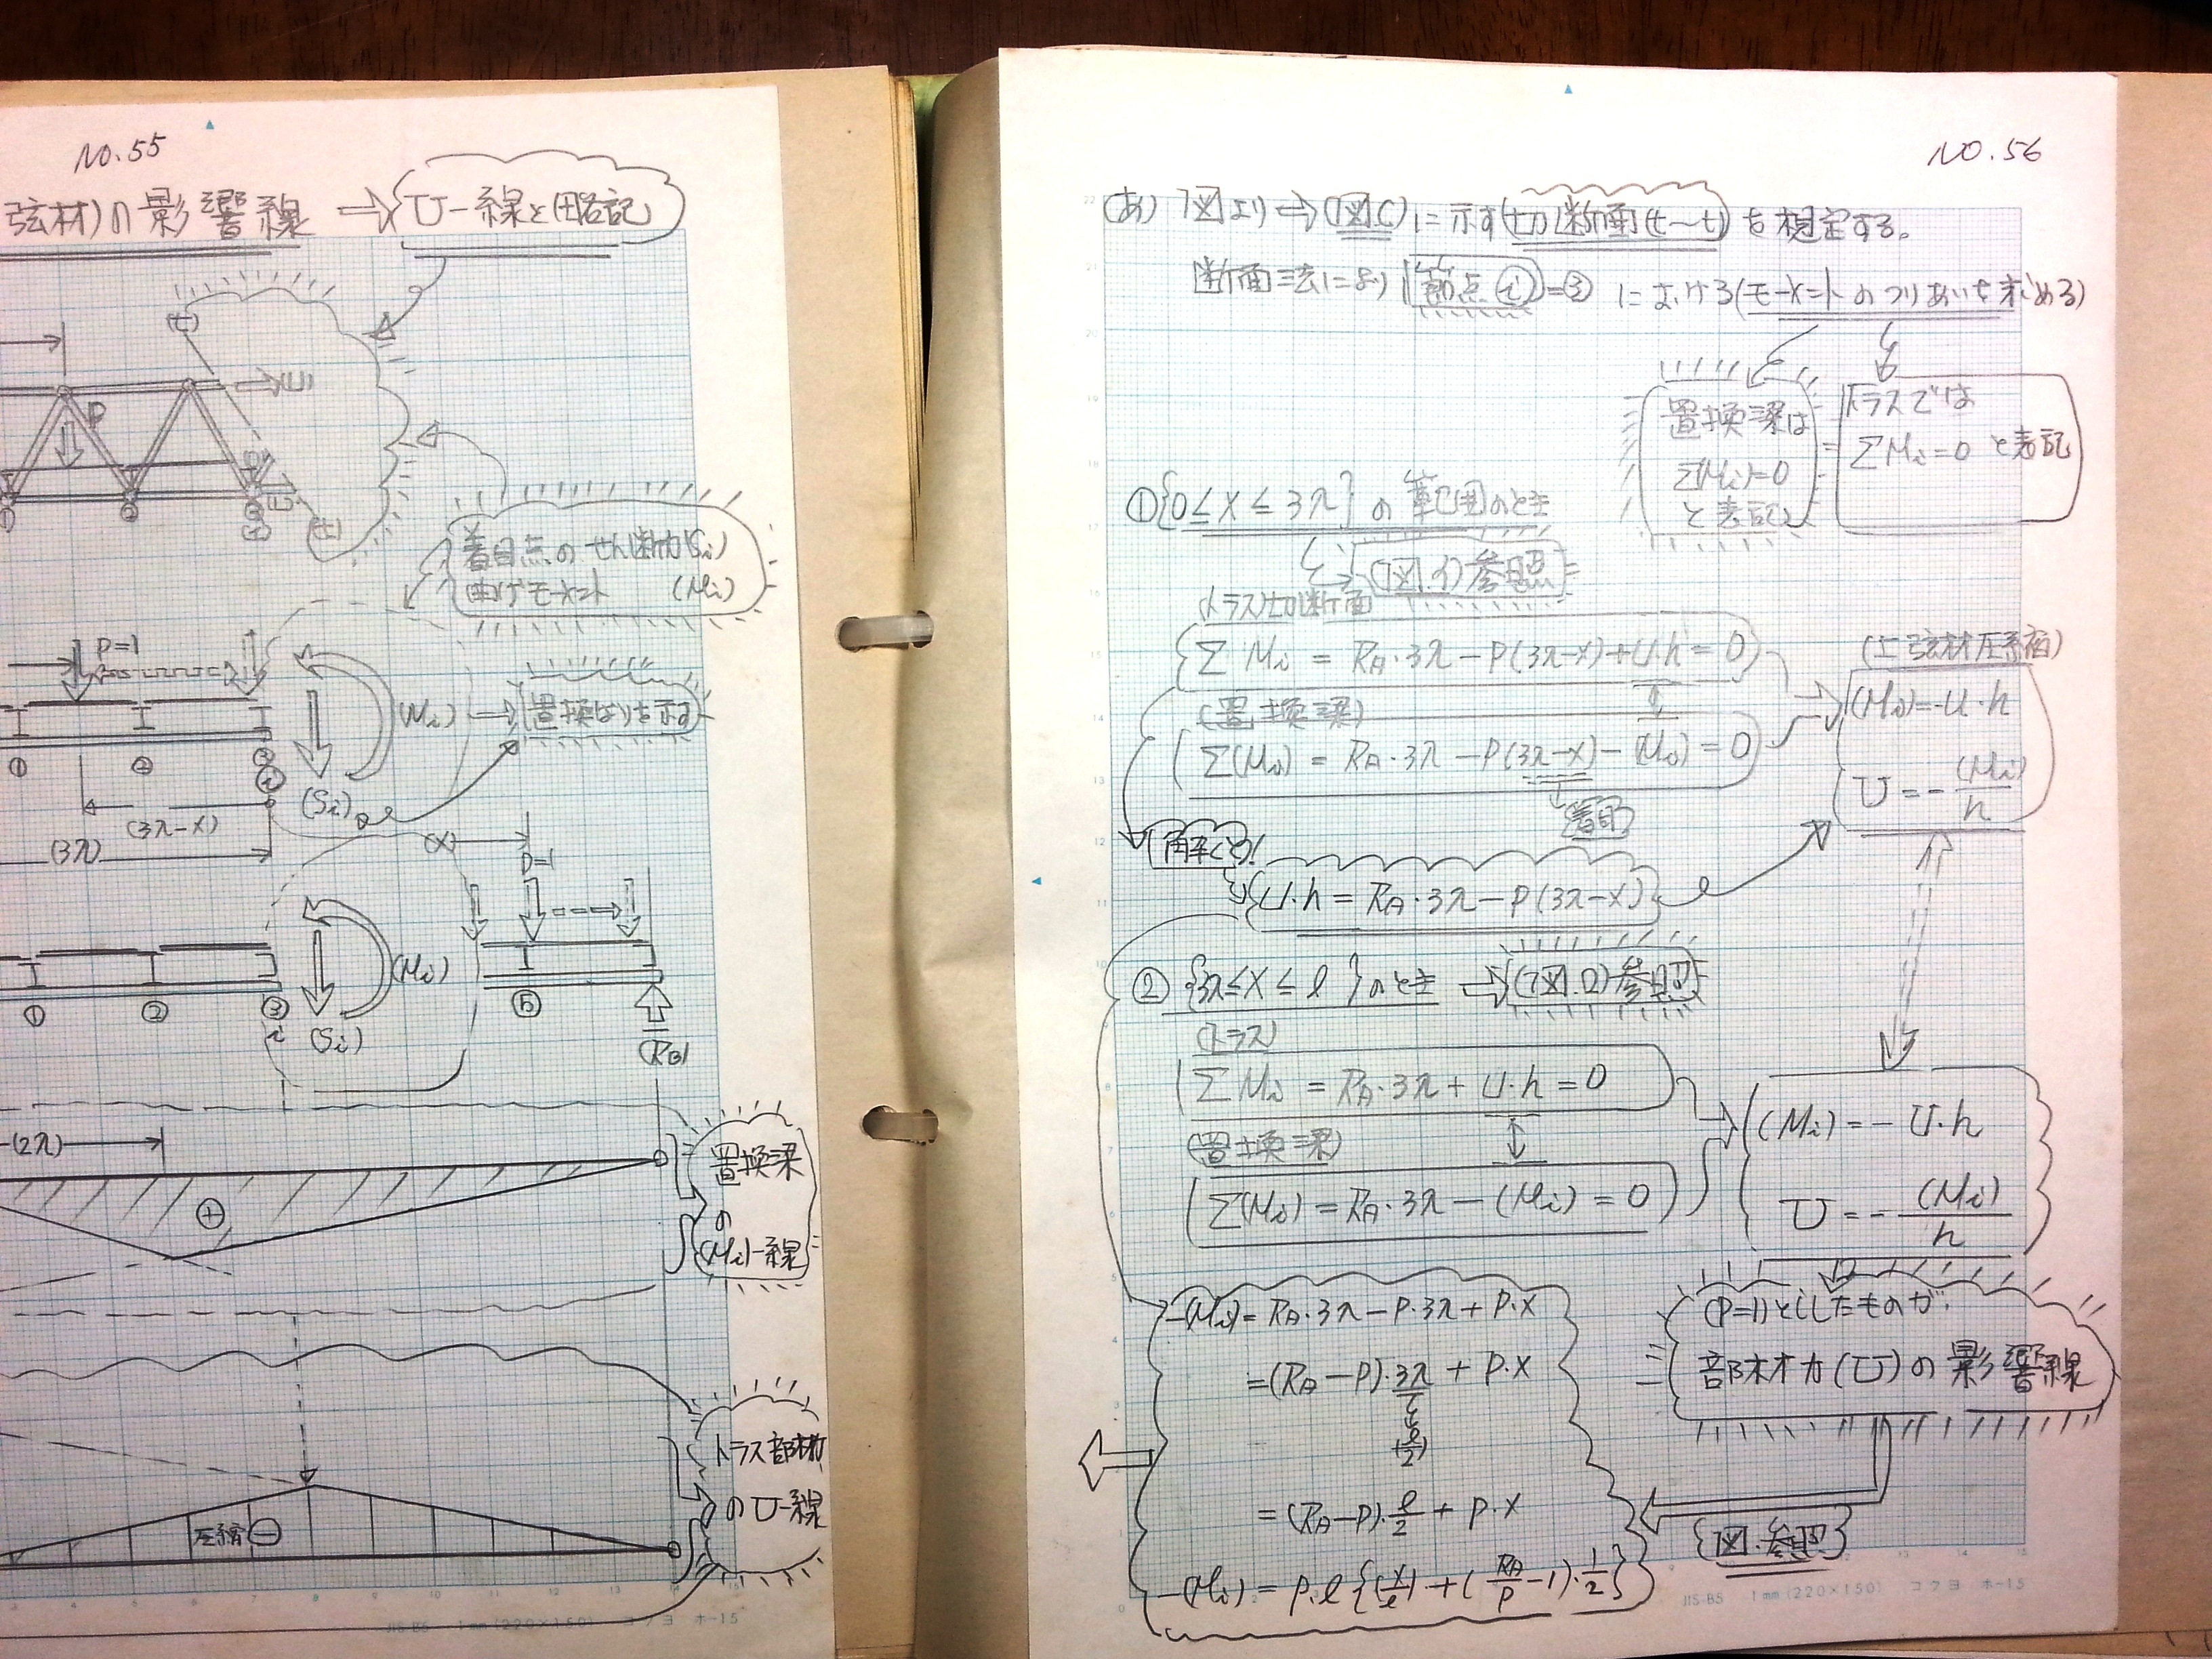 NO.55
弦材)の影響線 ⇒ U-線と略記
(t)
U
P
① ② ③
(t)
着目点のせん断力(Si)
曲げモーメント (Mi)
P=1
(Mi) → 置換はりを示す
① ② ③
(Si)
(3λ-x)
(3λ)
(x)
P=1
(Mi)
① ② ③ ⑤
i (Si) (RB)
(2λ)
⊕
置換梁
の
(Mi)-線
圧縮 ⊖
トラス部材
のU-線
JIS-B5 1mm(220×150) コクヨ ホ-15
NO.56
(あ) 図より⇒(図.C)に示す(切断面(t~t)を想定する。
断面法により 節点ⓘ=③ における(モーメントのつりあいを求める)
置換梁は
Σ(Mi)=0
と表記
トラスでは
ΣMi=0 と表記
①{0≦x≦3λ}の範囲のとき
(図.イ)参照
(トラス)切断面
ΣMi = RA·3λ-P(3λ-x)+U·h=0
(置換梁)
Σ(Mi) = RA·3λ-P(3λ-x)-(Mi)=0
着目
(上弦材圧縮)
(Mi)=-U·h
U=-(Mi)/h
解くと!
U·h=RA·3λ-P(3λ-x)
② {3λ≦x≦ℓ}のとき ⇒ (図.ロ)参照
(トラス)
ΣMi = RA·3λ+U·h=0
(置換梁)
Σ(Mi)=RA·3λ-(Mi)=0
(Mi)=-U·h
U=-(Mi)/h
-(Mi)=RA·3λ-P·3λ+P·x
=(RA-P)·3λ+P·x
(ℓ/2)
=(RA-P)·ℓ/2+P·x
-(Mi)=P·ℓ{(x/ℓ)+(RA/P-1)·1/2}
(P=1)としたものが
部材力(U)の影響線
{図.参照}
JIS-B5 1mm(220×150) コクヨ ホ-15